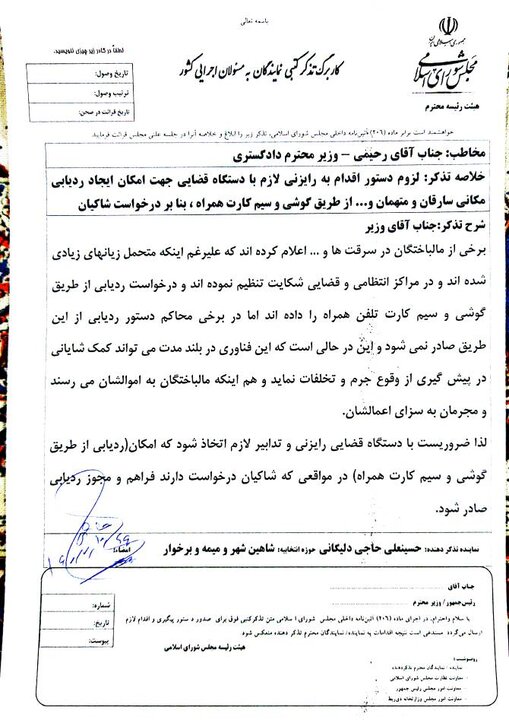 باسمه تعالی
جمهوری اسلامی ایران
مجلس شورای اسلامی
هیئت رئیسه محترم
کاربرگ تذکر کتبی نمایندگان به مسئولان اجرایی کشور
لطفاً در کادر زیر چیزی ننویسید.
تاریخ وصول:
ترتیب وصول:
تاریخ قرائت در صحن:
خواهشمند است برابر ماده (۲۰۶) آئین‌نامه داخلی مجلس شورای اسلامی، تذکر زیر را ابلاغ و خلاصه آنرا در جلسه علنی مجلس قرائت فرمایید.
مخاطب: جناب آقای رحیمی – وزیر محترم دادگستری
خلاصه تذکر: لزوم دستور اقدام به رایزنی لازم با دستگاه قضایی جهت امکان ایجاد ردیابی
مکانی سارقان و متهمان و... از طریق گوشی و سیم کارت همراه ، بنا بر درخواست شاکیان
شرح تذکر:جناب آقای وزیر
برخی از مالباختگان در سرقت ها و ... اعلام کرده اند که علیرغم اینکه متحمل زیانهای زیادی
شده اند و در مراکز انتظامی و قضایی شکایت تنظیم نموده اند و درخواست ردیابی از طریق
گوشی و سیم کارت تلفن همراه را داده اند اما در برخی محاکم دستور ردیابی از این
طریق صادر نمی شود و این در حالی است که این فناوری در بلند مدت می تواند کمک شایانی
در پیش گیری از وقوع جرم و تخلفات نماید و هم اینکه مالباختگان به اموالشان می رسند
و مجرمان به سزای اعمالشان.
لذا ضروریست با دستگاه قضایی رایزنی و تدابیر لازم اتخاذ شود که امکان(ردیابی از طریق
گوشی و سیم کارت همراه) در مواقعی که شاکیان درخواست دارند فراهم و مجوز ردیابی
صادر شود.
نماینده تذکر دهنده: حسینعلی حاجی دلیگانی حوزه انتخابیه: شاهین شهر و میمه و برخوار امضاء:
جناب آقای
رئیس‌جمهور / وزیر محترم
با سلام واحترام، در اجرای ماده (۲۰۶) آئین‌نامه داخلی مجلس شورای اسلامی متن تذکرکتبی فوق برای صدور دستور پیگیری و اقدام لازم
ارسال می‌گردد مستدعی است نتیجه اقدامات به نماینده/ نمایندگان محترم تذکر دهنده منعکس شود
هیئت رئیسه مجلس شورای اسلامی
شماره:
تاریخ:
پیوست:
رونوشت:
نماینده - نمایندگان محترم تذکردهنده
- معاونت نظارت مجلس شورای اسلامی
- معاونت امور مجلس رئیس جمهور
- معاونت امور مجلس وزارتخانه ذی‌ربط